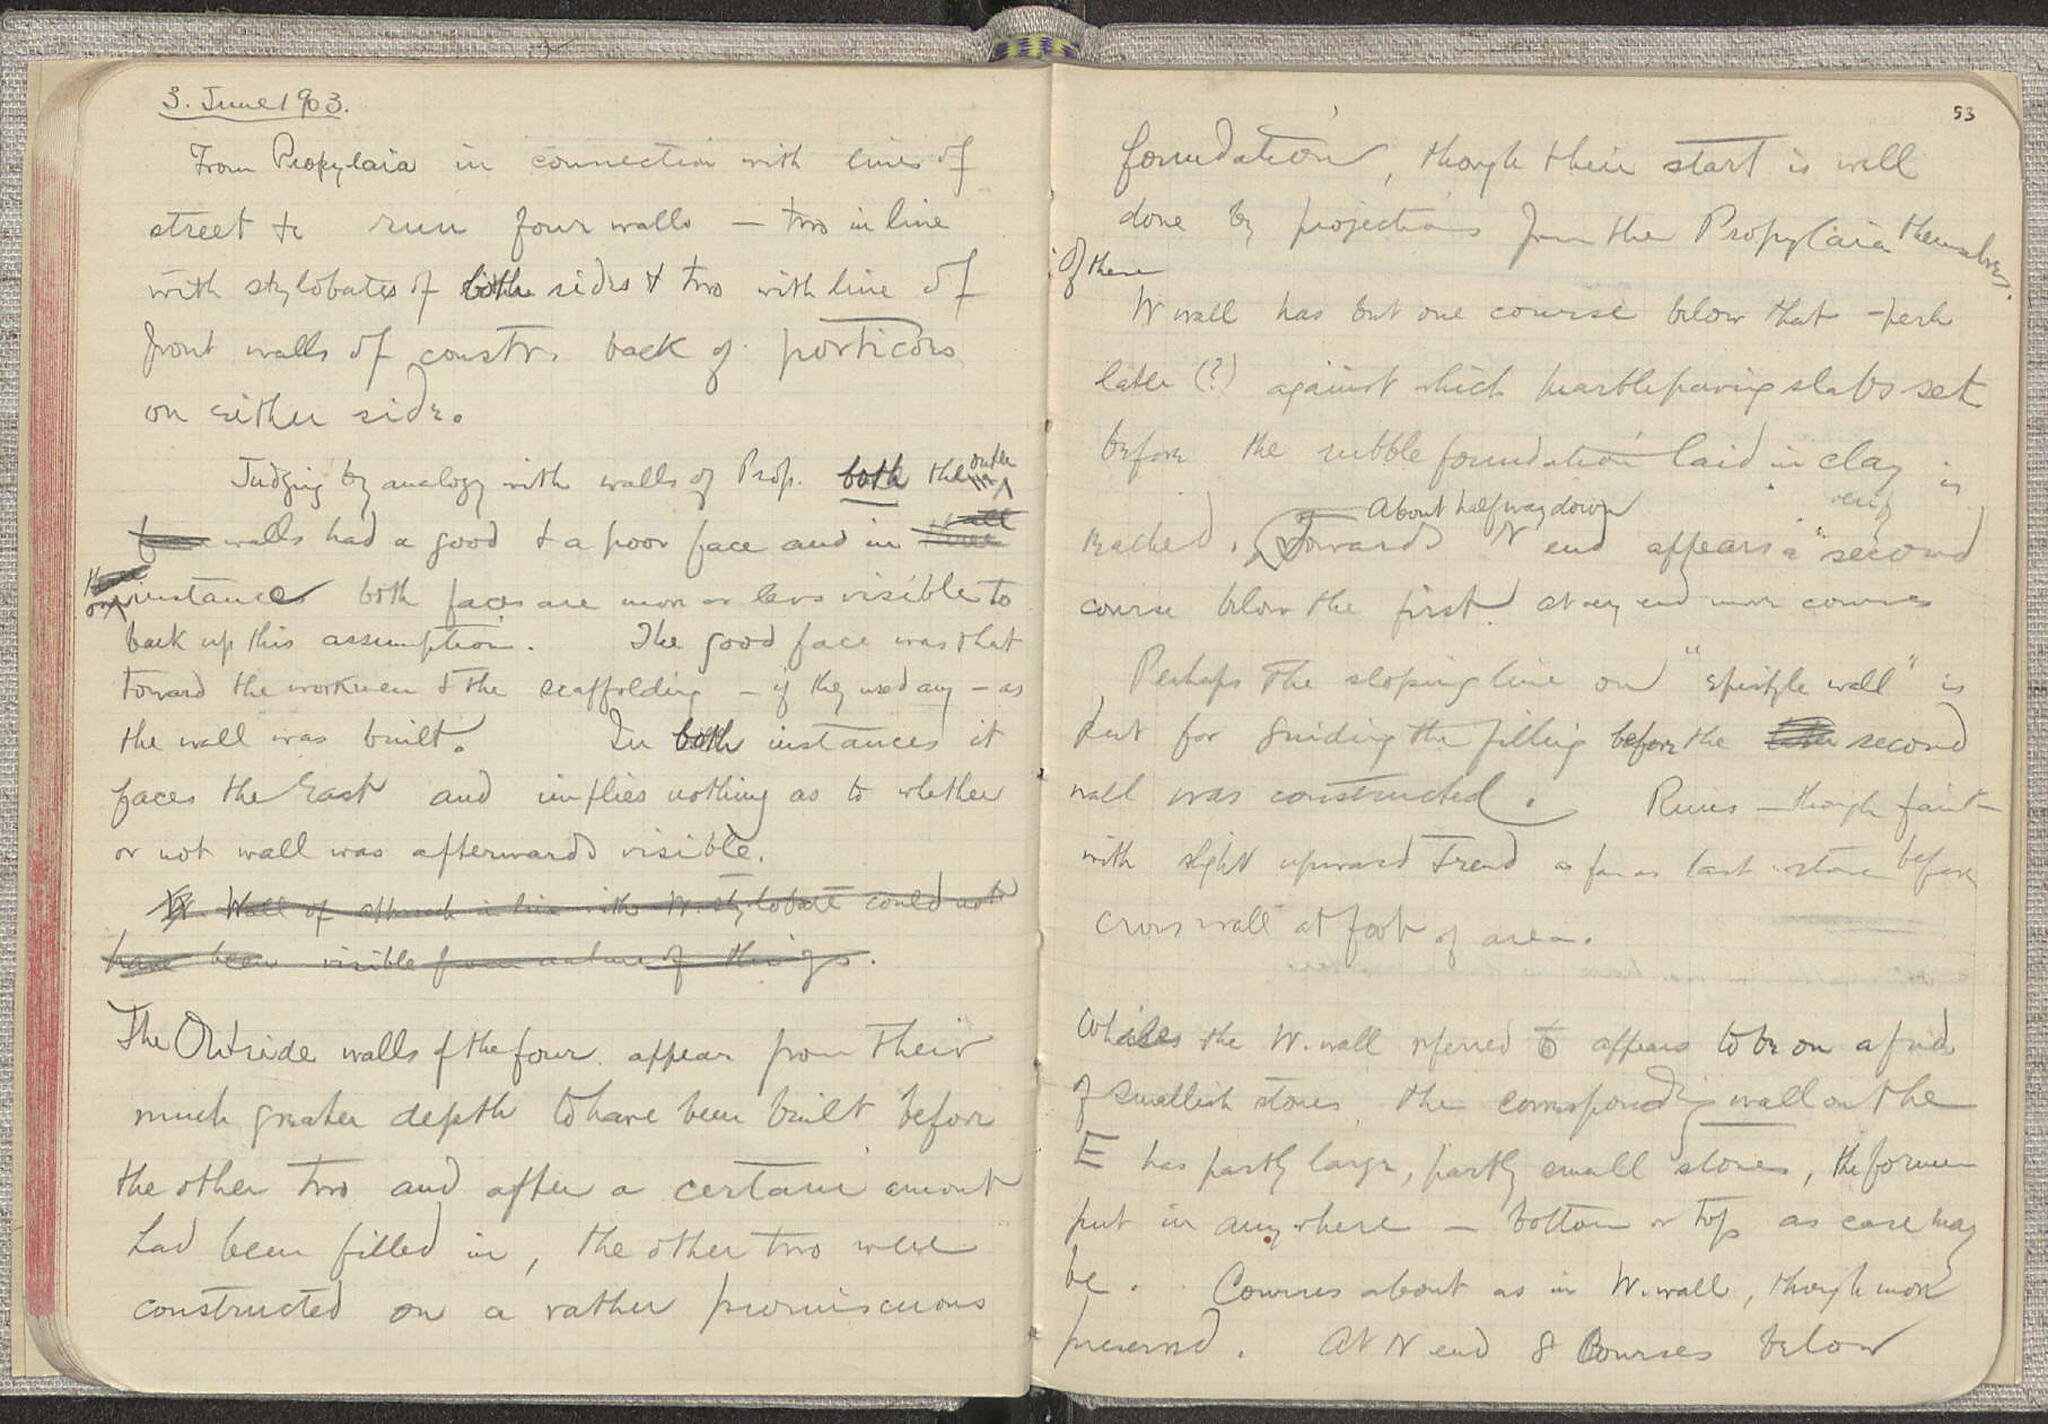 3. June 1903.
From Propylaia in connection with lines of
street &c run four walls — two in line
with stylobates of both sides & two with line of
front walls of constr. back of porticoes
on either side.
Judging by analogy with walls of Prop. both the outer
walls had a good & a poor face and in
instances both faces are more or less visible to
back up this assumption. The good face was that
toward the workmen & the scaffolding — if they used any — as
the wall was built. In both instances it
faces the East and implies nothing as to whether
or not wall was afterwards visible.
W. Wall of approach in line with W. stylobate could not
have been visible from nature of things.
The Outside walls of the four appear from their
much greater depth to have been built before
the other two and after a certain amount
had been filled in, the other two were
constructed on a rather promiscuous
53
foundation, though their start is well
done by projections from the Propylaia themselves.
Of these
W wall has but one course below that – perh
later (?) against which marble paving slabs set
before the rubble foundation laid in clay is
reached. About halfway down
Towards N end appears a "second
course below the first. At very end more courses
Perhaps the sloping line on "epistyle wall" is
but for guiding the filling before the second
wall was constructed. Runs — though faint —
with slight upward trend as far as last stone before
cross wall at foot of area.
Whiles the W. wall referred to appears to be on a fnd.
of smallish stones the corresponding wall on the
E has partly large, partly small stones, the former
put in anywhere — bottom or top as case may
be. Courses about as in W. wall, though more
preserved. At N end 8 Courses below